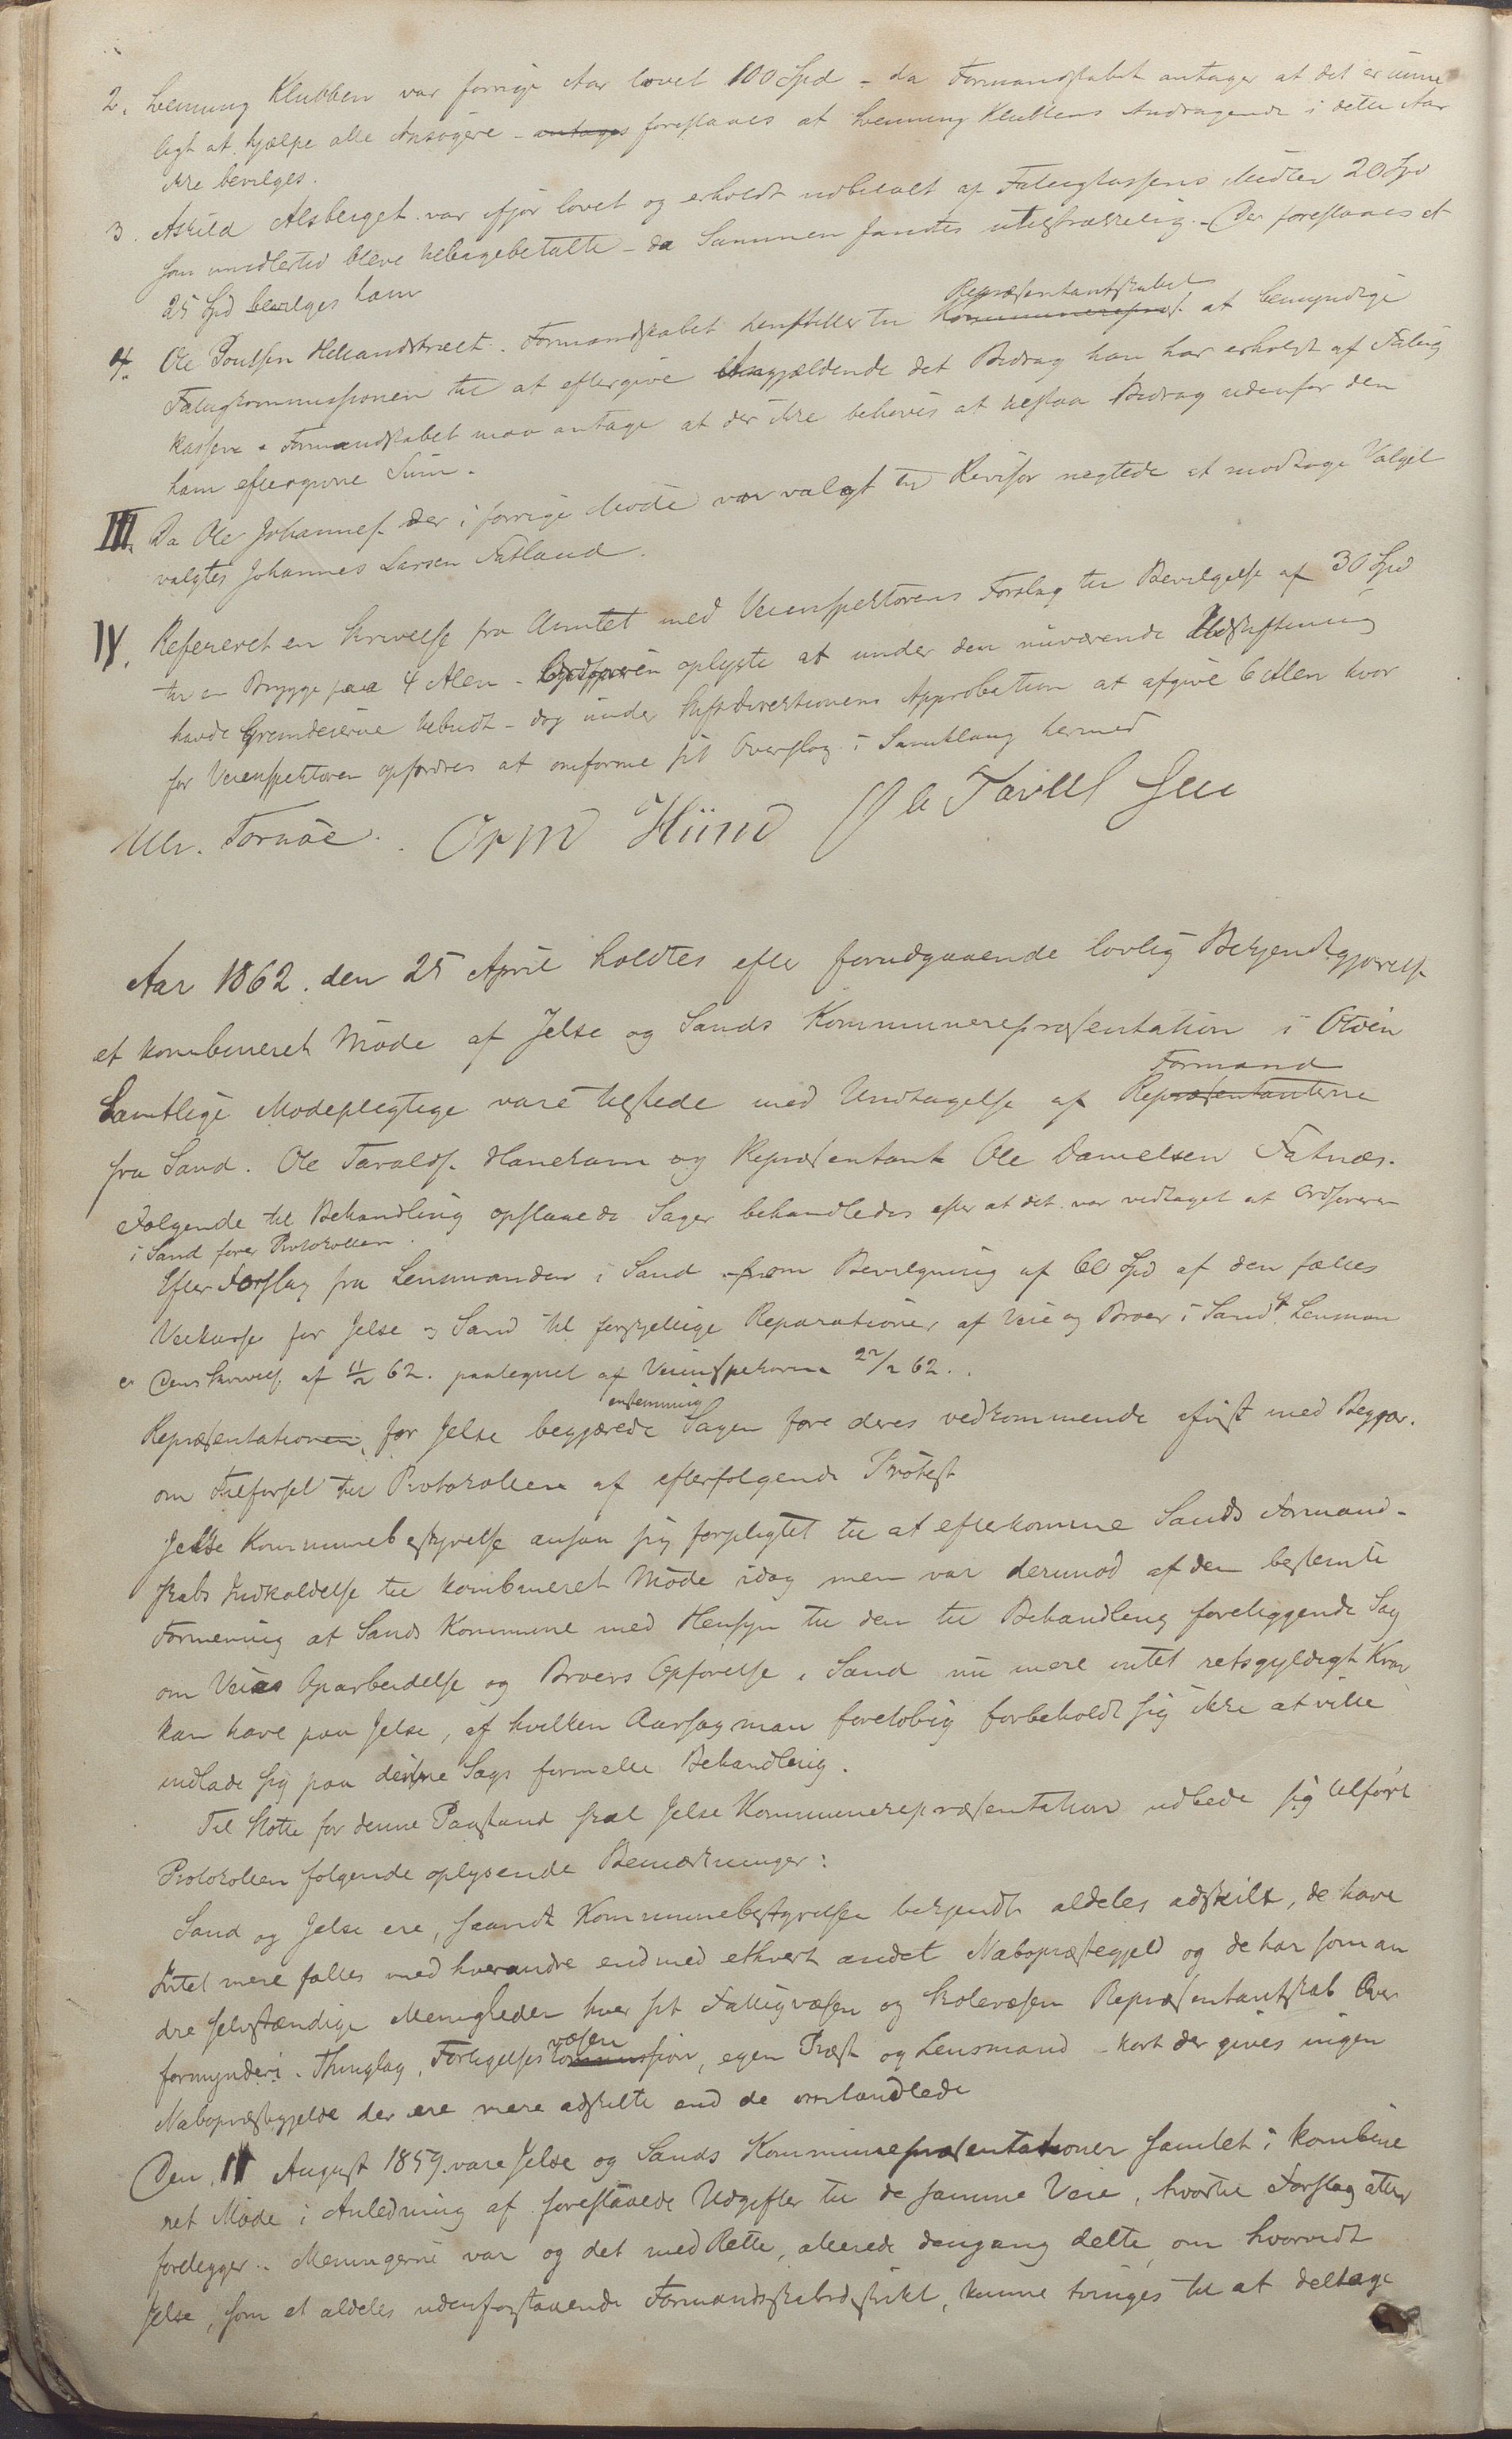 2. Henning Klubben var forrige Aar lovet 100 Spd - da Formandskabet antager at det er umu
ligt at hjælpe alle Ansøgere - antages foreslaaes at Henning Klubbens Andragende i dette Aar
ikke bevilges.
3. Askild Alsberget var ifjor lovet og erholdt udbetalt af Fatigkassens Midler 20 Spd
som imidlertid bleve tilbagebetalte - da Summen fandtes utilstrækkelig. - Der foreslaaes at
25 Spd bevilges ham
Repræsentantskabet
4. Ole Poulsen Helandstræet. Formandskabet henstiller til Kommunerepræs. at bemyndige
Fatigkommissionen til at eftergive Angjældende det Bidrag han har erholdt af Fatig
kassen. Formandskabet maa antage at der ikke behøves at tilstaa Bidrag udenfor den
ham eftergivne Sum.
III. Da Ole Johannes. der i forrige Møde var valgt til Revisor negtede at modtage Valget
valgtes Johannes Larsen Fatland.
IV. Refereret en Skrivelse fra Amtet med Veiinspektørens Forslag til Bevilgelse af 30 Spd
til en Brygge paa 4 Alen - Ordføreren oplyste at under den nuværende Udskiftning
havde Grundeierne tilbudt - dog under Stiftsdirektionens Approbation at afgive 6 Alen hvor
for Veiinspektøren opfordres at omforme sit Overslag i Samklang hermed
Ulr. Tornøe. Orm Hiim Ole Tarals Sen
Aar 1862. den 25 April holdtes efter forudgaaende lovlig Bekjendtgjørelse
et kombineret Møde af Jelse og Sands Kommunerepræsentation i
Formand
Samtlige Mødepligtige vare tilstede med Undtagelse af Repræsentanterne
fra Sand. Ole Taralds. Hanekam og Repræsentant Ole Danielsen Fatnæs.
Følgende til Behandling opstaaede Sager behandledes efter at det var vedtaget at Ordføreren
i Sand fører Protokollen.
Efter Forslag fra Lensmanden i Sand om Bevilgning af 60 Spd af den fælles
Veikasse for Jelse og Sand til forskjellige Reparationer af Veie og Broer i Sand cf Lensman
dens Skrivelse af 11/2 62. paategnet af Veiinspektøren 22/2 62.
enstemmig
Repræsentationen, for Jelse begjærede Sagen fore deres vedkommende afvist med Begjær.
om Tilførsel til Protokollen af efterfølgende Protest
Jelse Kommunebestyrelse ansaa sig forpligtet til at efterkomme Sands Formand-
skabs Indkaldelse til kombineret Møde idag men var derimod af den bestemte
Formening at Sands Kommune med Hensyn til den til Behandling foreliggende Sag
om Veies Oparbeidelse og Broers Opførelse i Sand nu mere intet retsgyldigt Krav
kan have paa Jelse, af hvilken Aarsag man foreløbig forbeholdt sig ikke at ville
indlade sig paa denne Sags formelle Behandling.
Til Støtte for denne Paastand skal Jelse Kommunerepræsentation udbede sig tilført
Protokollen følgende oplysende Bemærkninger:
Sand og Jelse ere, saavidt Kommunebestyrelsen bekjendt aldeles adskilt, de have
Intet mere fælles med hverandre end med ethvert andet Nabopræstegjeld og de har som an
dre selvstændige Menigheder hver sit Fattigvæsen og Skolevæsen Repræsentantskab Over
væsen
formynderi. Thinglag, Forligelseskommission, egen Præst og Lensmand - kort der gives ingen
Nabopræstegjelde der ere mere adskilte end de omhandlede
Den 11 August 1859 vare Jelse og Sands Kommunepræsentationer samlet i kombine
ret Møde i Anledning af foreslaaede Udgifter til de samme Veie, hvortil Forslag atter
forelegger. Meningerne var og det med Rette, allerede dengang delte, om hvorvidt
Jelse, som et aldeles udenforstaaende Formandskabsdistrikt, kunne tvinges til at deltage